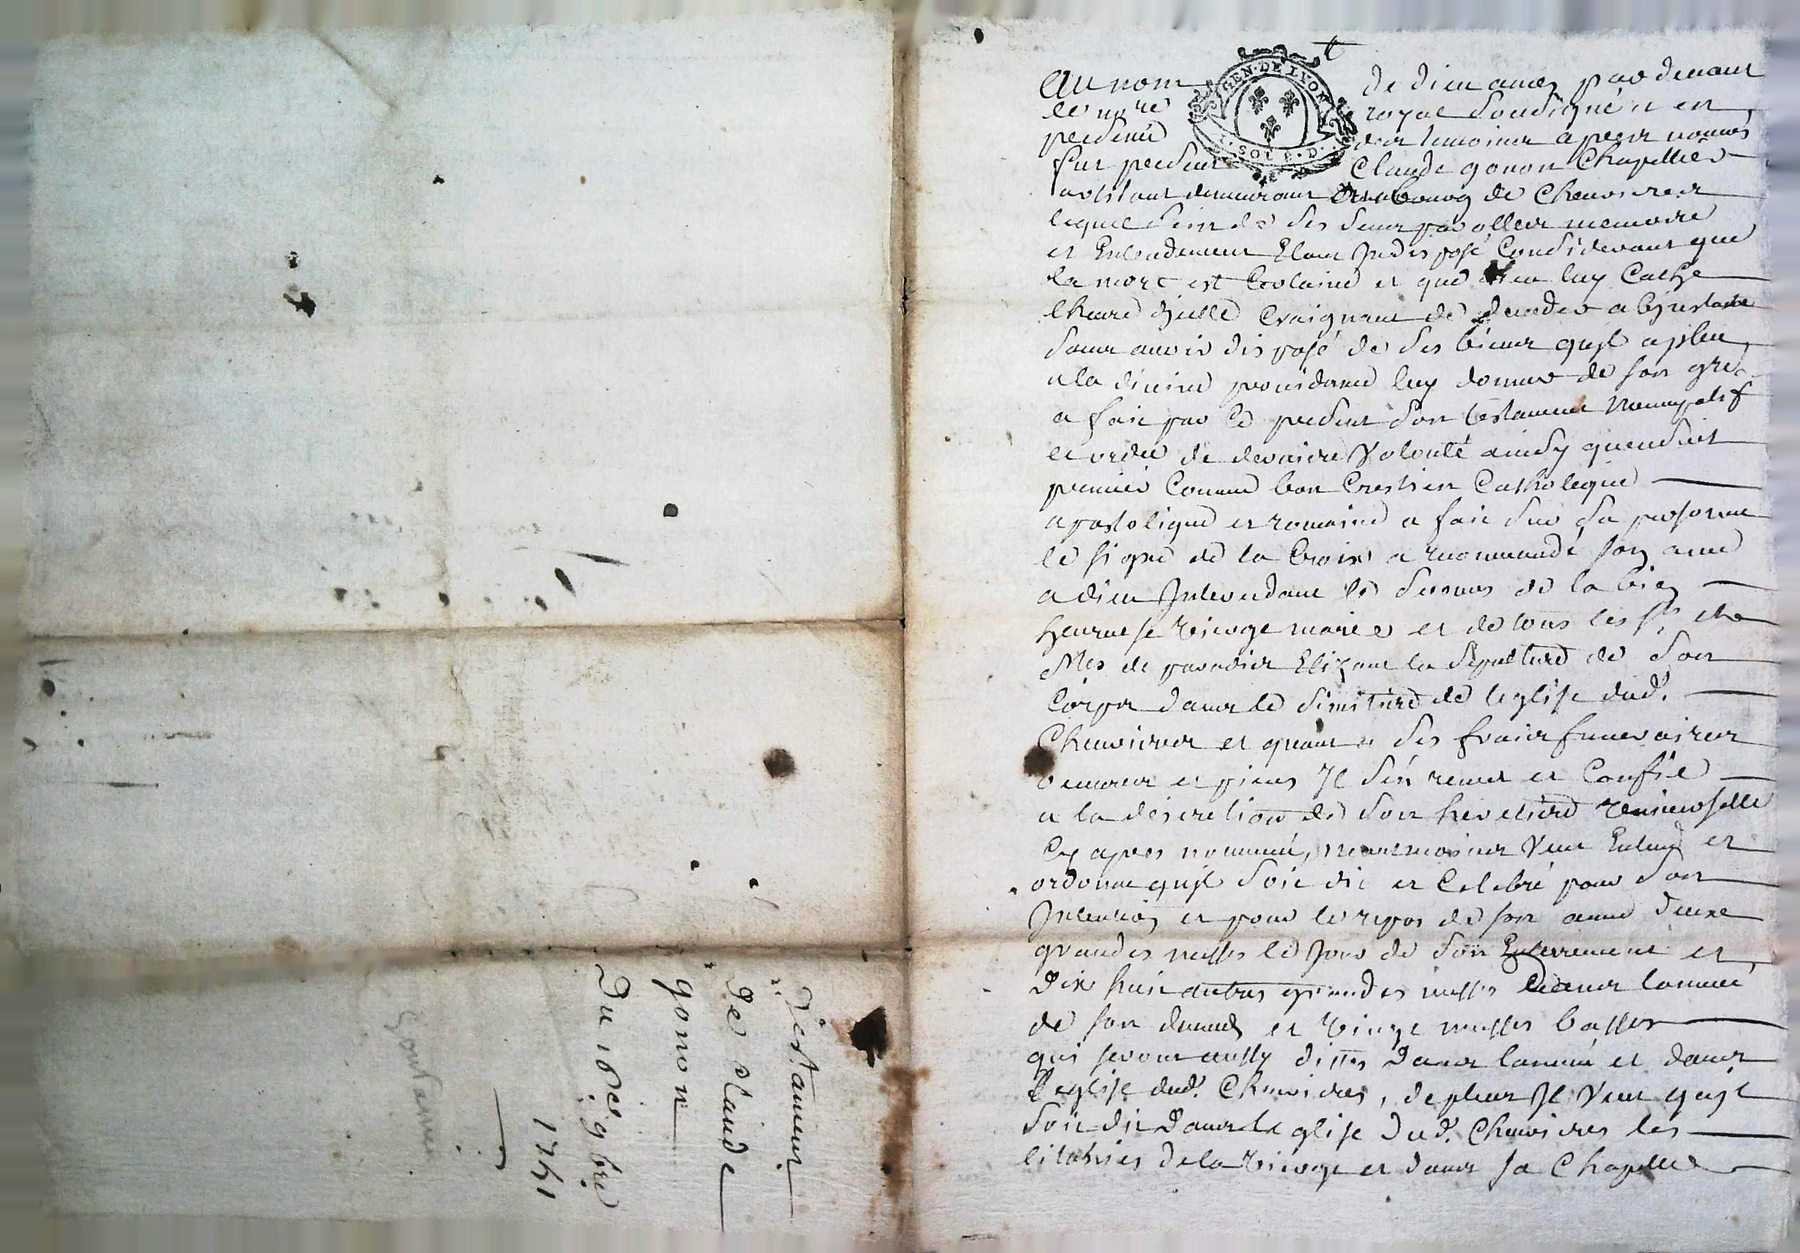 Testament
de Claude
gonon
Du 10e 9bre
1741
GEN · DE LYON
SOLS · D ·
Au nom de dieu amen par devant
le nore royal soussigné et en
presence des temoins apres nommés
fut present Claude gonon Chapellier
habitant demeurant au bourg de Chevrieres
lequel sein de ses sens parolles memoire
et Entendement Etant Indisposé Considerant que
la mort est Certaine et que dieu luy Cache
lheure dicelle Craignant de deceder abintestat
sans avoir disposé de ses biens quil a pleu
a la divine providence luy donner de son gré
a fait par Ce present son testament Nuncupatif
et ordre de derniere Volonté ainsy quensuit
premier Comme bon Crestien Catholique
apostolique et romaine a fait sur sa personne
le signe de la Croix a recommandé son ame
a dieu Intercedant la bien
heureuse vierge marie et de tous les sts et stes
de paradis Elizant la sepulture de son
Corps dans le simitiere de leglise dud.
Chevrieres et quant a ses fraix funeraires
et pieux Il sen remet et Confie
a la discretion de son heritiere universelle
Cy apres nommée, neanmoins Veut Entend et
ordonne quil soit dit et Celebré pour son
Intention et pour le repos de son ame deux
grandes messes le jour de son Enterrement et
Dix huit autres grandes messes dans lannée
de son deceds et vingt messes basses
qui seront aussy dittes dans lannée et dans
leglise dud. Chevrieres, de plus Il Veut quil
soit dit dans leglise dud. Chevrieres les
litanies de la vierge et dans sa Chapelle